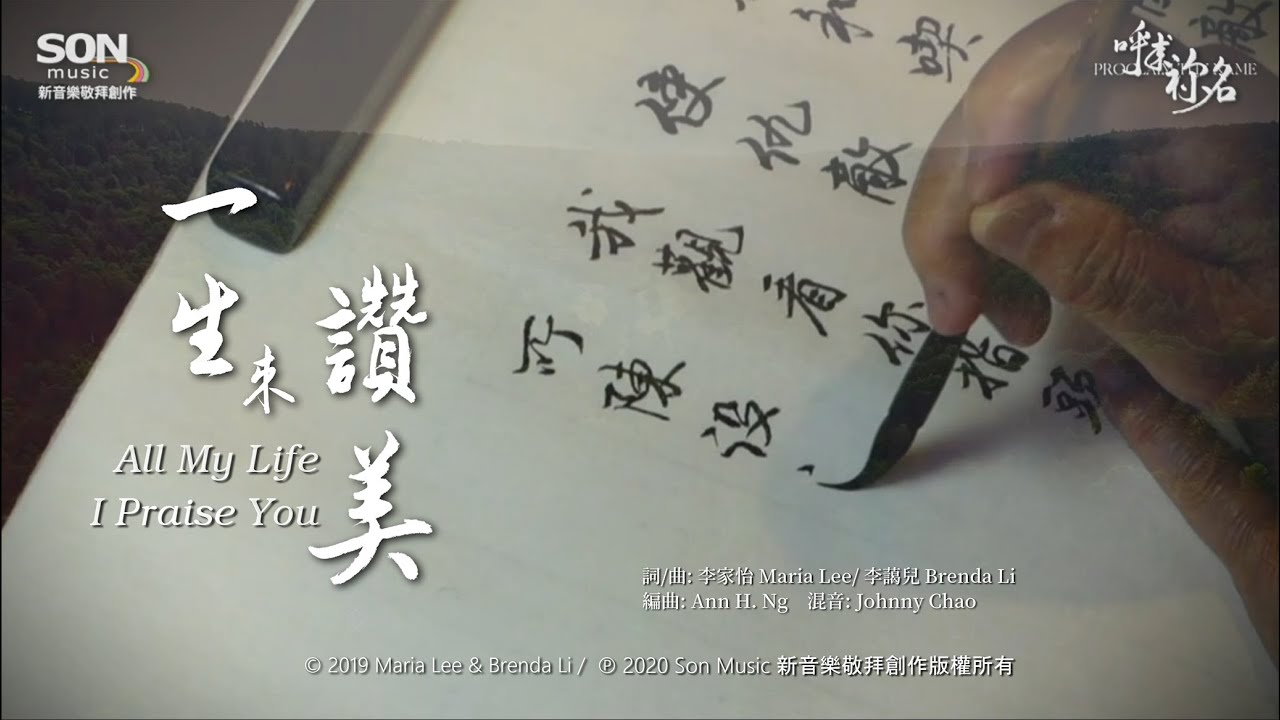 SON
music
新音樂敬拜創作
呼求祢名
和喫
使仇敵
我觀看你指
所陳設
一生來讚美
All My Life
I Praise You
詞/曲: 李家怡 Maria Lee/ 李藹兒 Brenda Li
編曲: Ann H. Ng 混音: Johnny Chao
© 2019 Maria Lee & Brenda Li / ℗ 2020 Son Music 新音樂敬拜創作版權所有